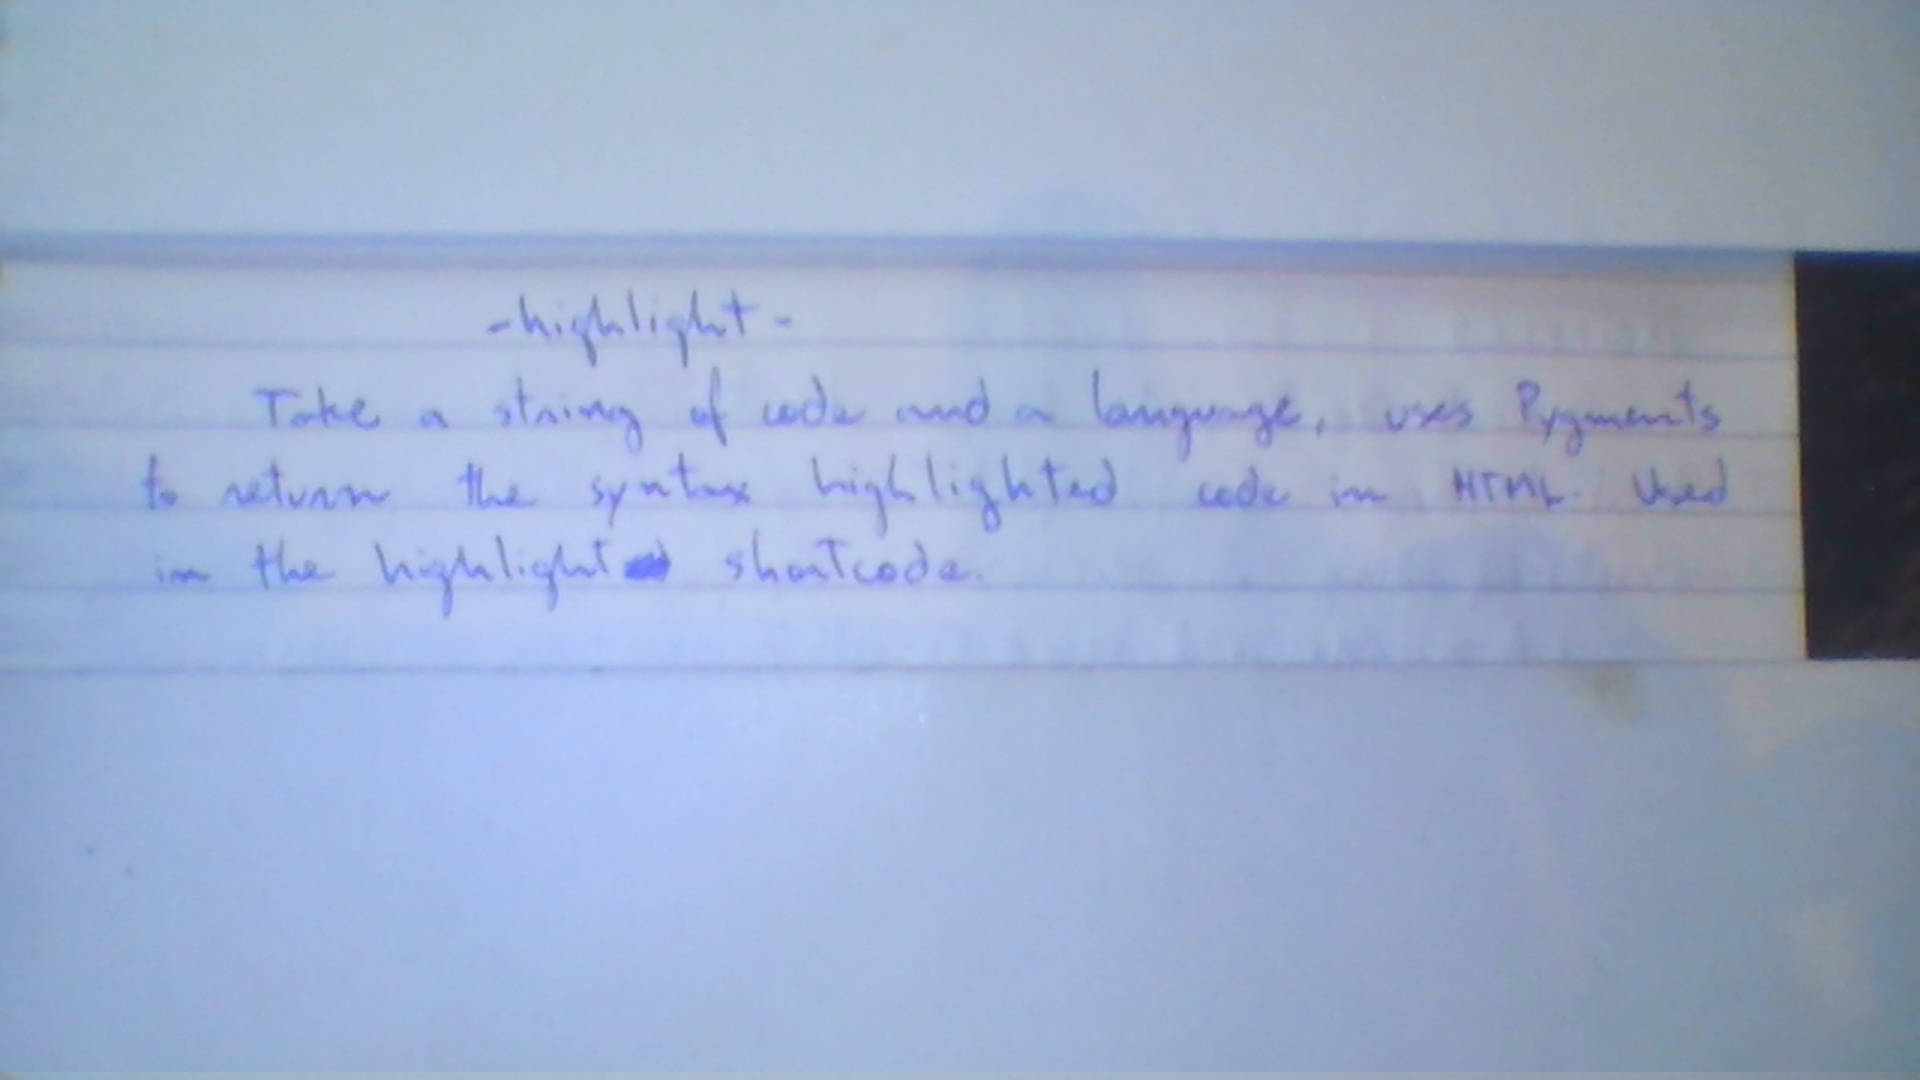 -highlight-
Take a string of code and a language, uses Pygments
to return the syntax highlighted code in HTML. Used
in the highlight shortcode.